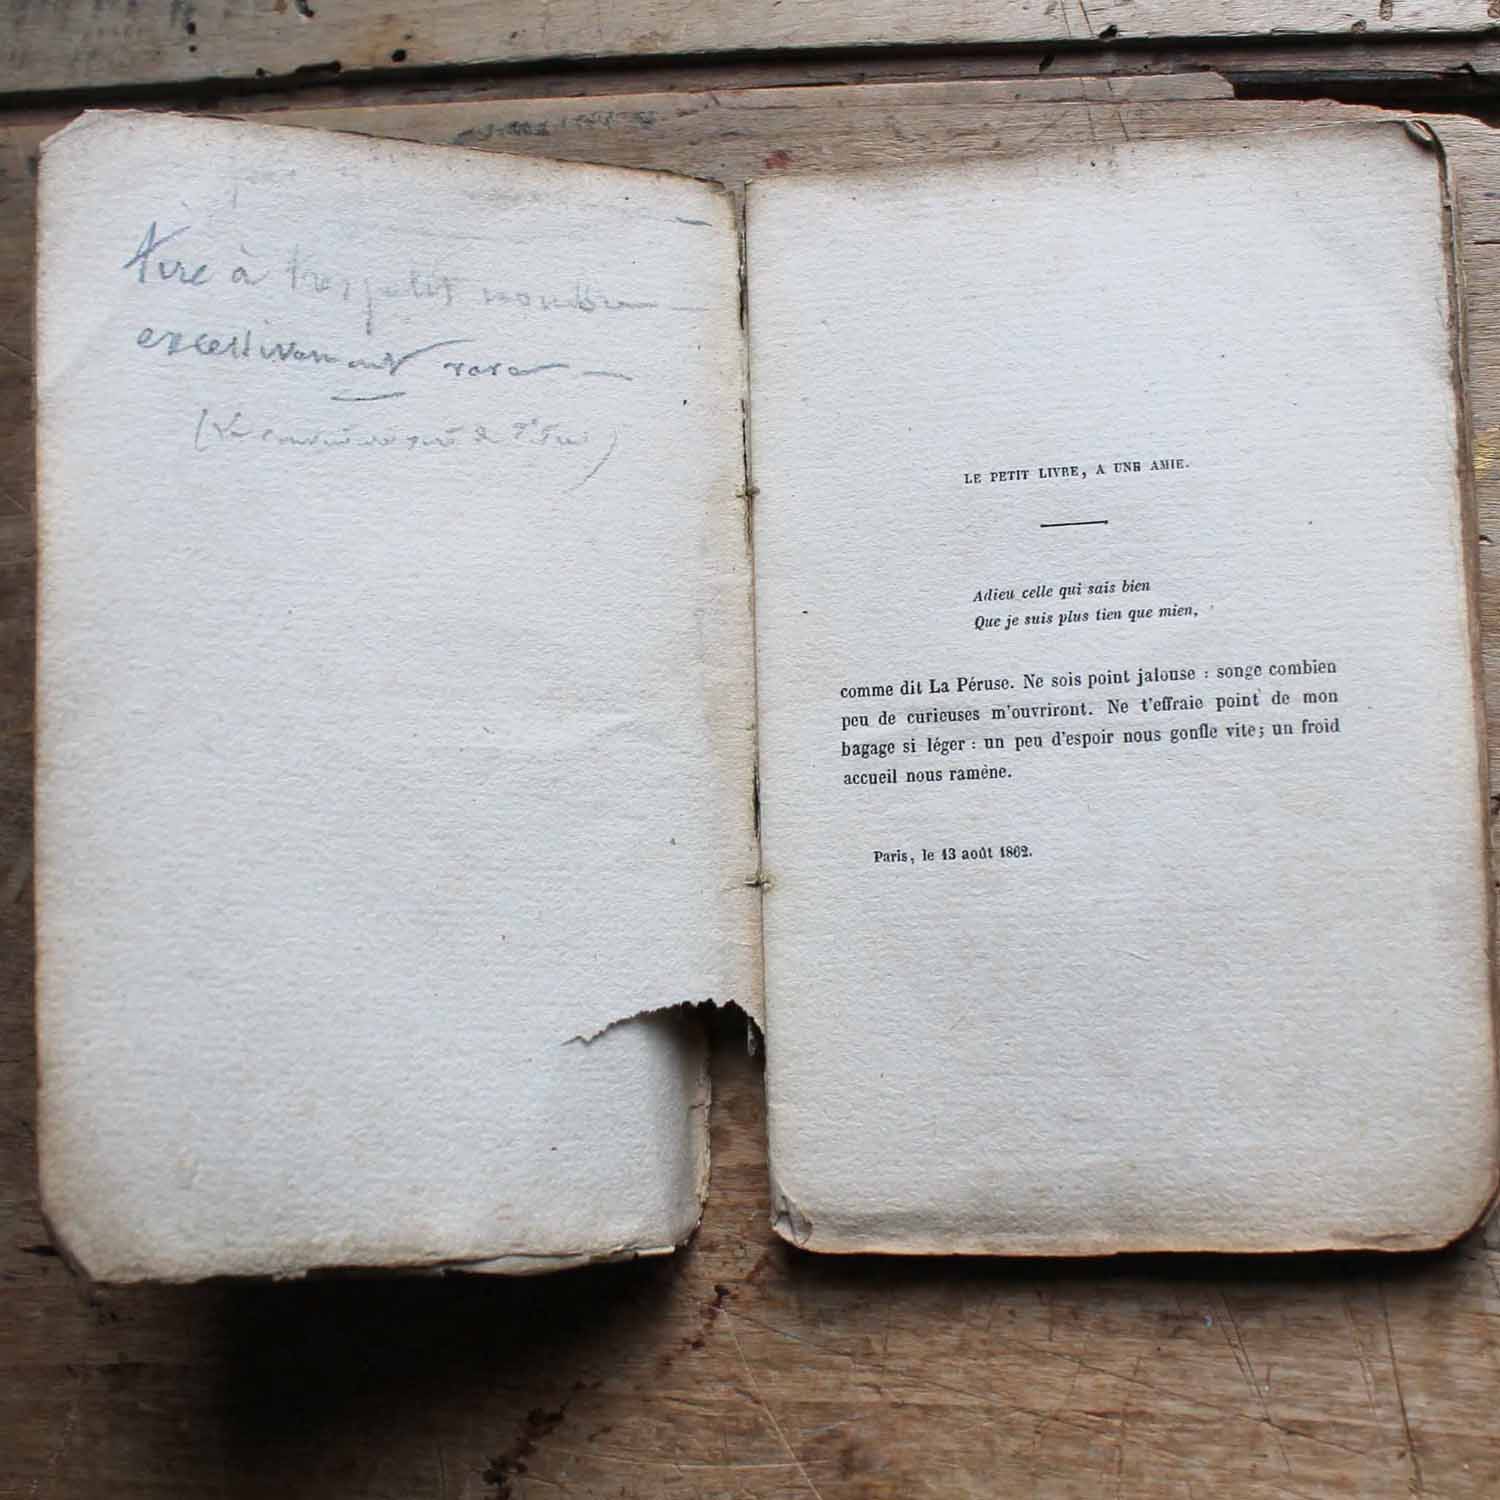 tiré à très petit nombre —
excessivement rare —
LE PETIT LIVRE, A UNE AMIE.
Adieu celle qui sais bien
Que je suis plus tien que mien,
comme dit La Péruse. Ne sois point jalouse : songe combien
peu de curieuses m'ouvriront. Ne t'effraie point de mon
bagage si léger : un peu d'espoir nous gonfle vite; un froid
accueil nous ramène.
Paris, le 13 août 1862.